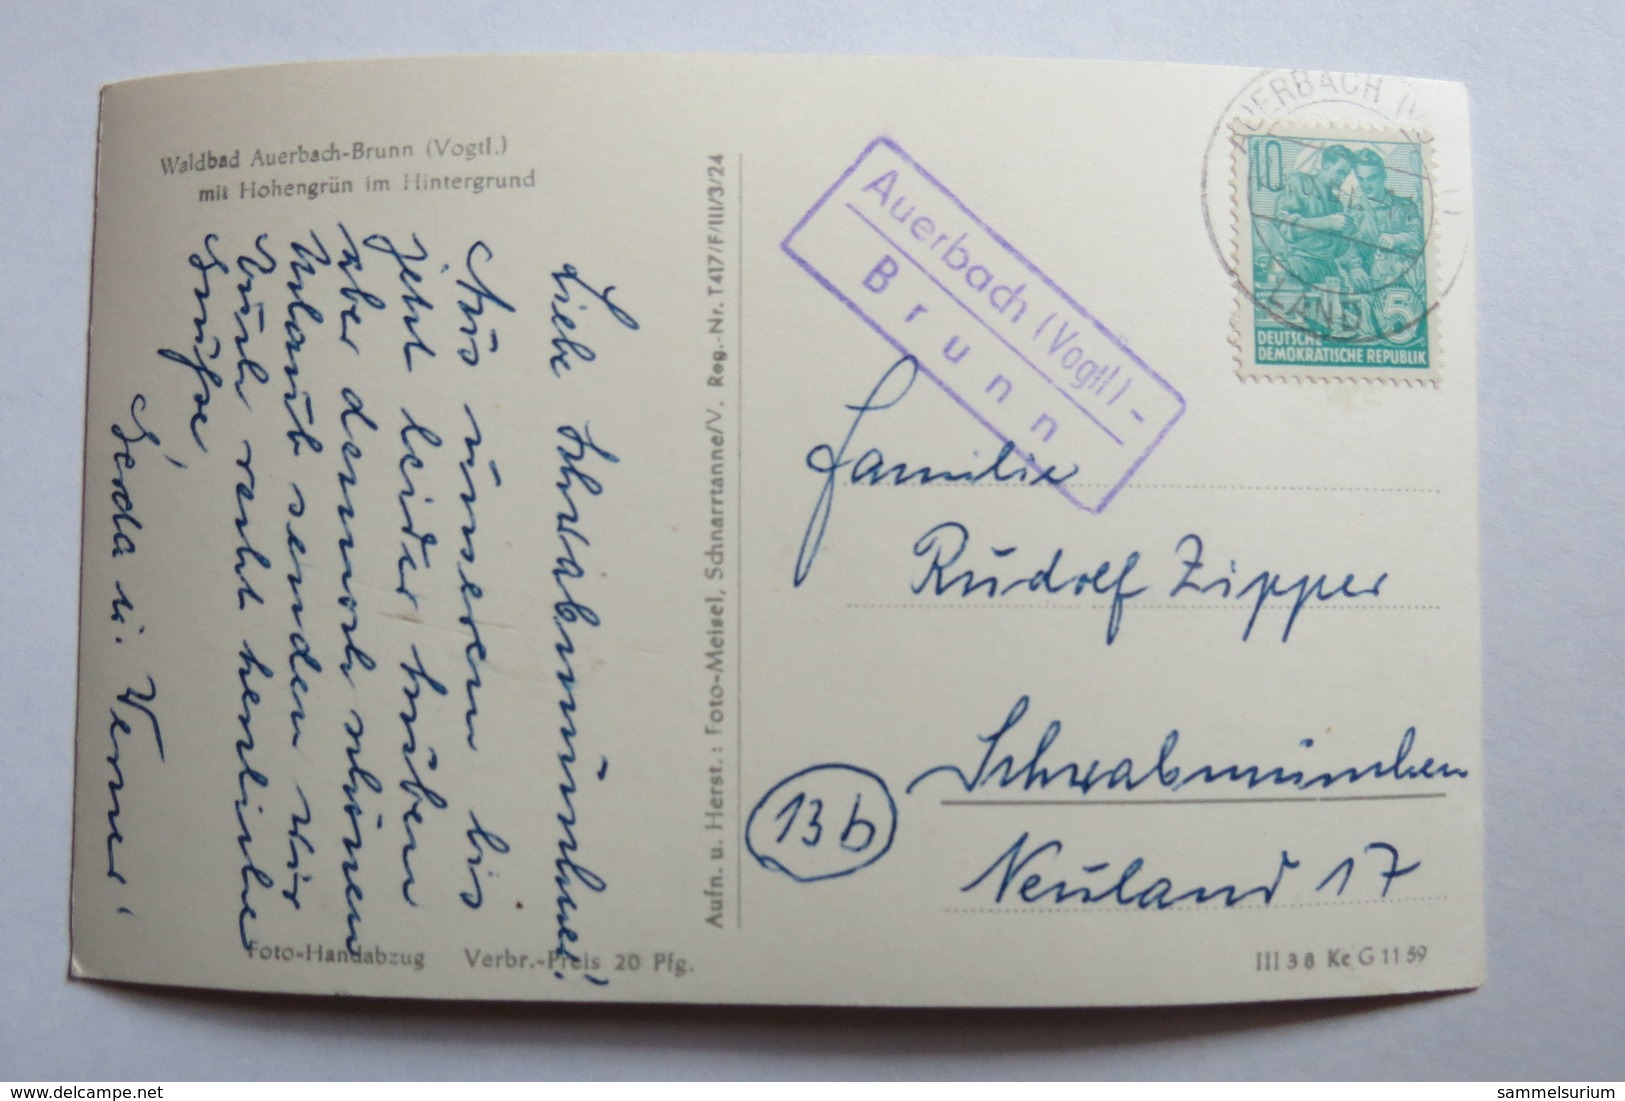 Waldbad Auerbach-Brunn (Vogtl.)
mit Hohengrün im Hintergrund
Liebe Schwabmünchner!
Aus unserem bis
jetzt leider trüben
aber dennoch schönen
Urlaub senden wir
Euch recht herzliche
Grüße,
Gerda u. Werner
Foto-Handabzug Verbr.-Preis 20 Pfg.
Aufn. u. Herst.: Foto-Meisel, Schnarrtanne/V. Reg.-Nr. T417/F/III/3/24
Auerbach (Vogtl.) -
Brunn
AUERBACH
LAND
10
5
DEUTSCHE
DEMOKRATISCHE REPUBLIK
Familie
Rudolf Zipper
13b
Schwabmünchen
Neuland 17
III 38 Kc G 11 59
sammelsurium
delcampe.net